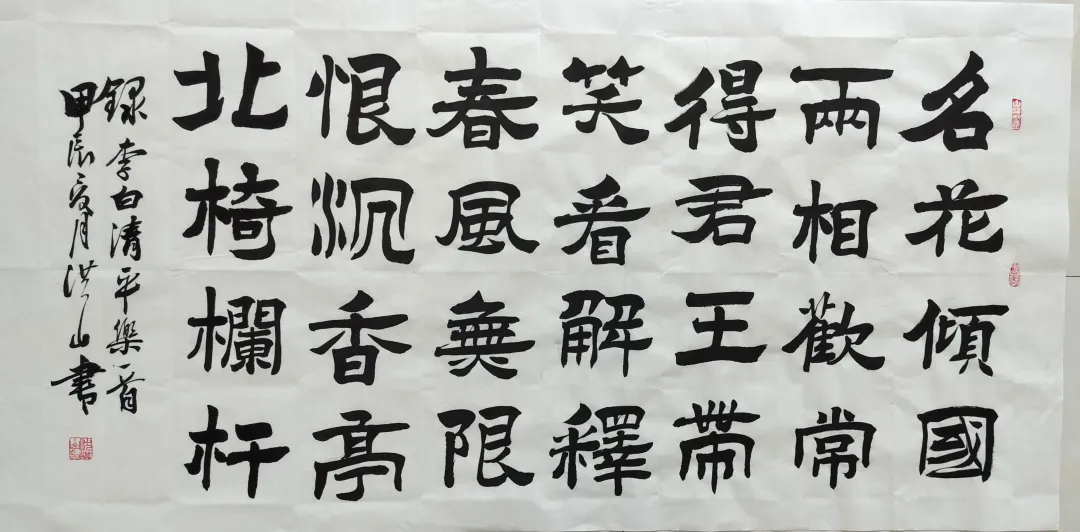 名花傾國
兩相歡常
得君王帶
笑看解釋
春風無限
恨沉香亭
北椅欄杆
録李白清平樂一首
甲辰夏月洪山書